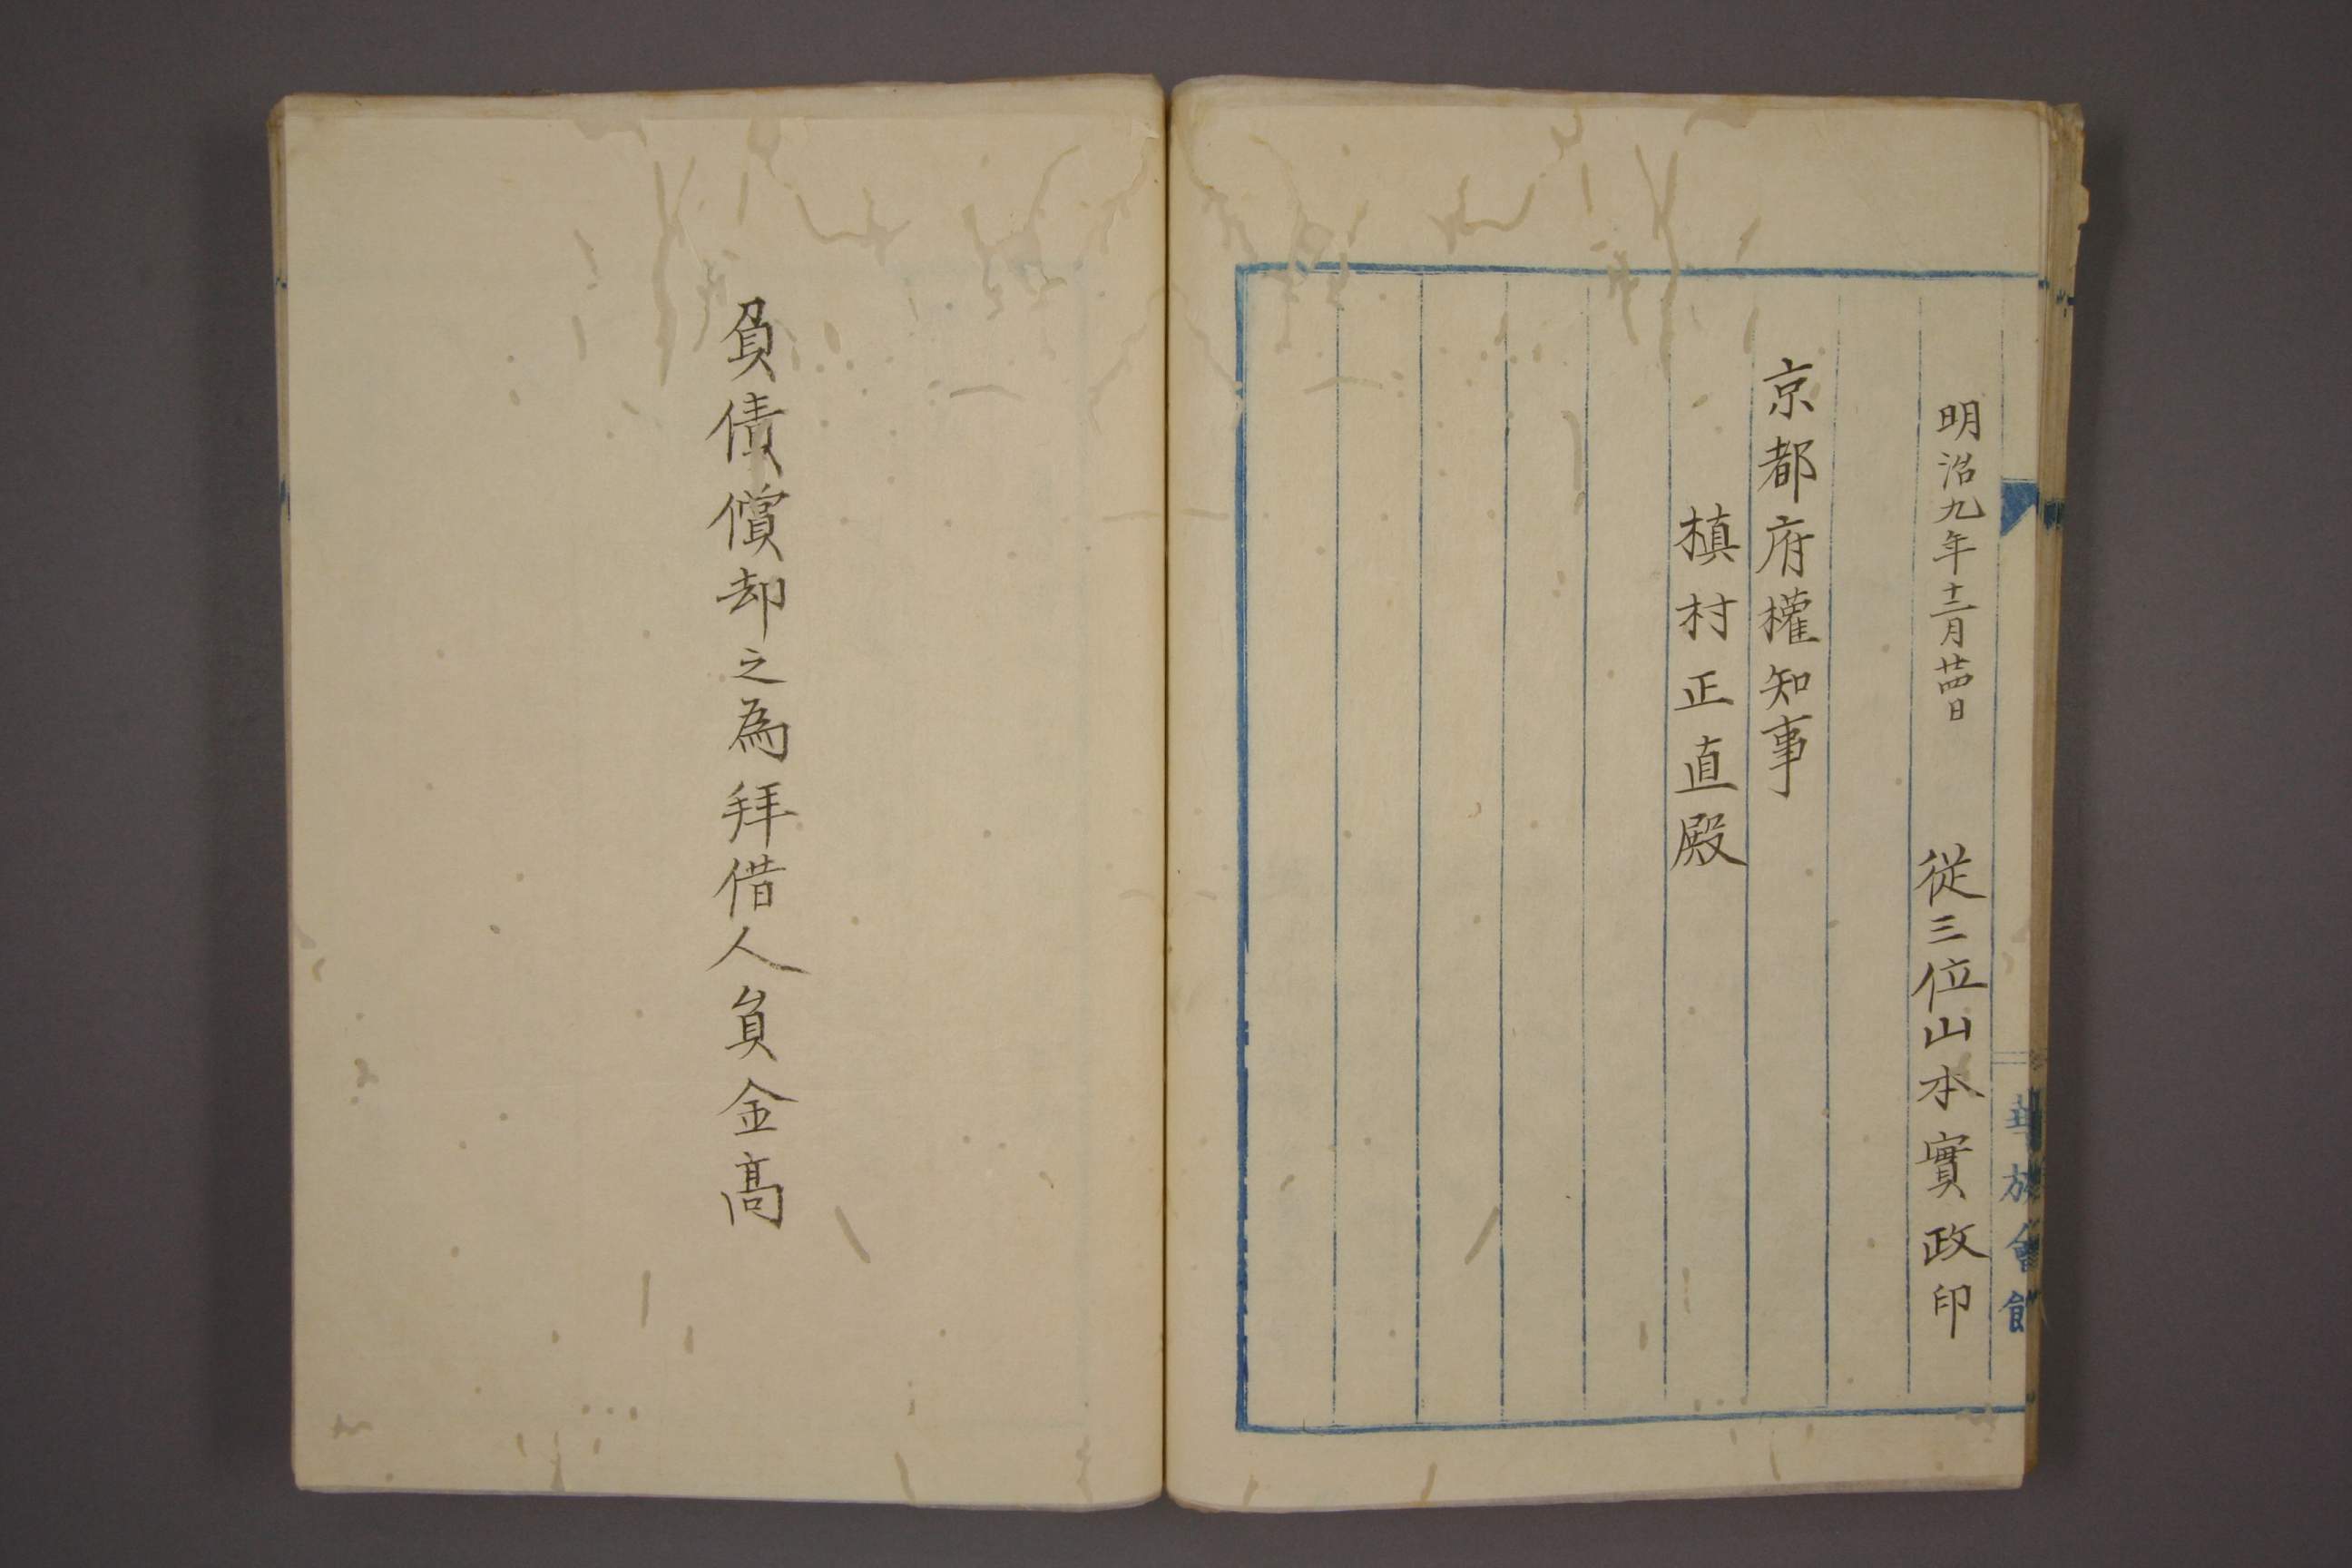 明治九年十二月廿四日　從三位山本實政印
京都府權知事
槙村正直殿
華族會館
負債償却之為拜借人負金高